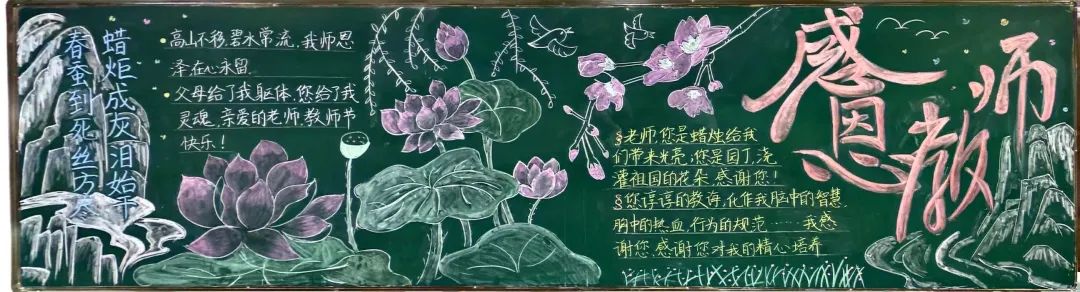 春蚕到死丝方尽
蜡炬成灰泪始干
高山不移，碧水常流，我师恩
泽在心永留
父母给了我躯体，您给了我
灵魂，亲爱的老师教师节
快乐！
§老师，您是蜡烛给我
们带来光亮；您是园丁，浇
灌祖国的花朵，感谢您！
§您谆谆的教诲，化作我脑中的智慧，
胸中的热血，行为的规范……我感
谢您，感谢您对我的精心培养
感恩
教师